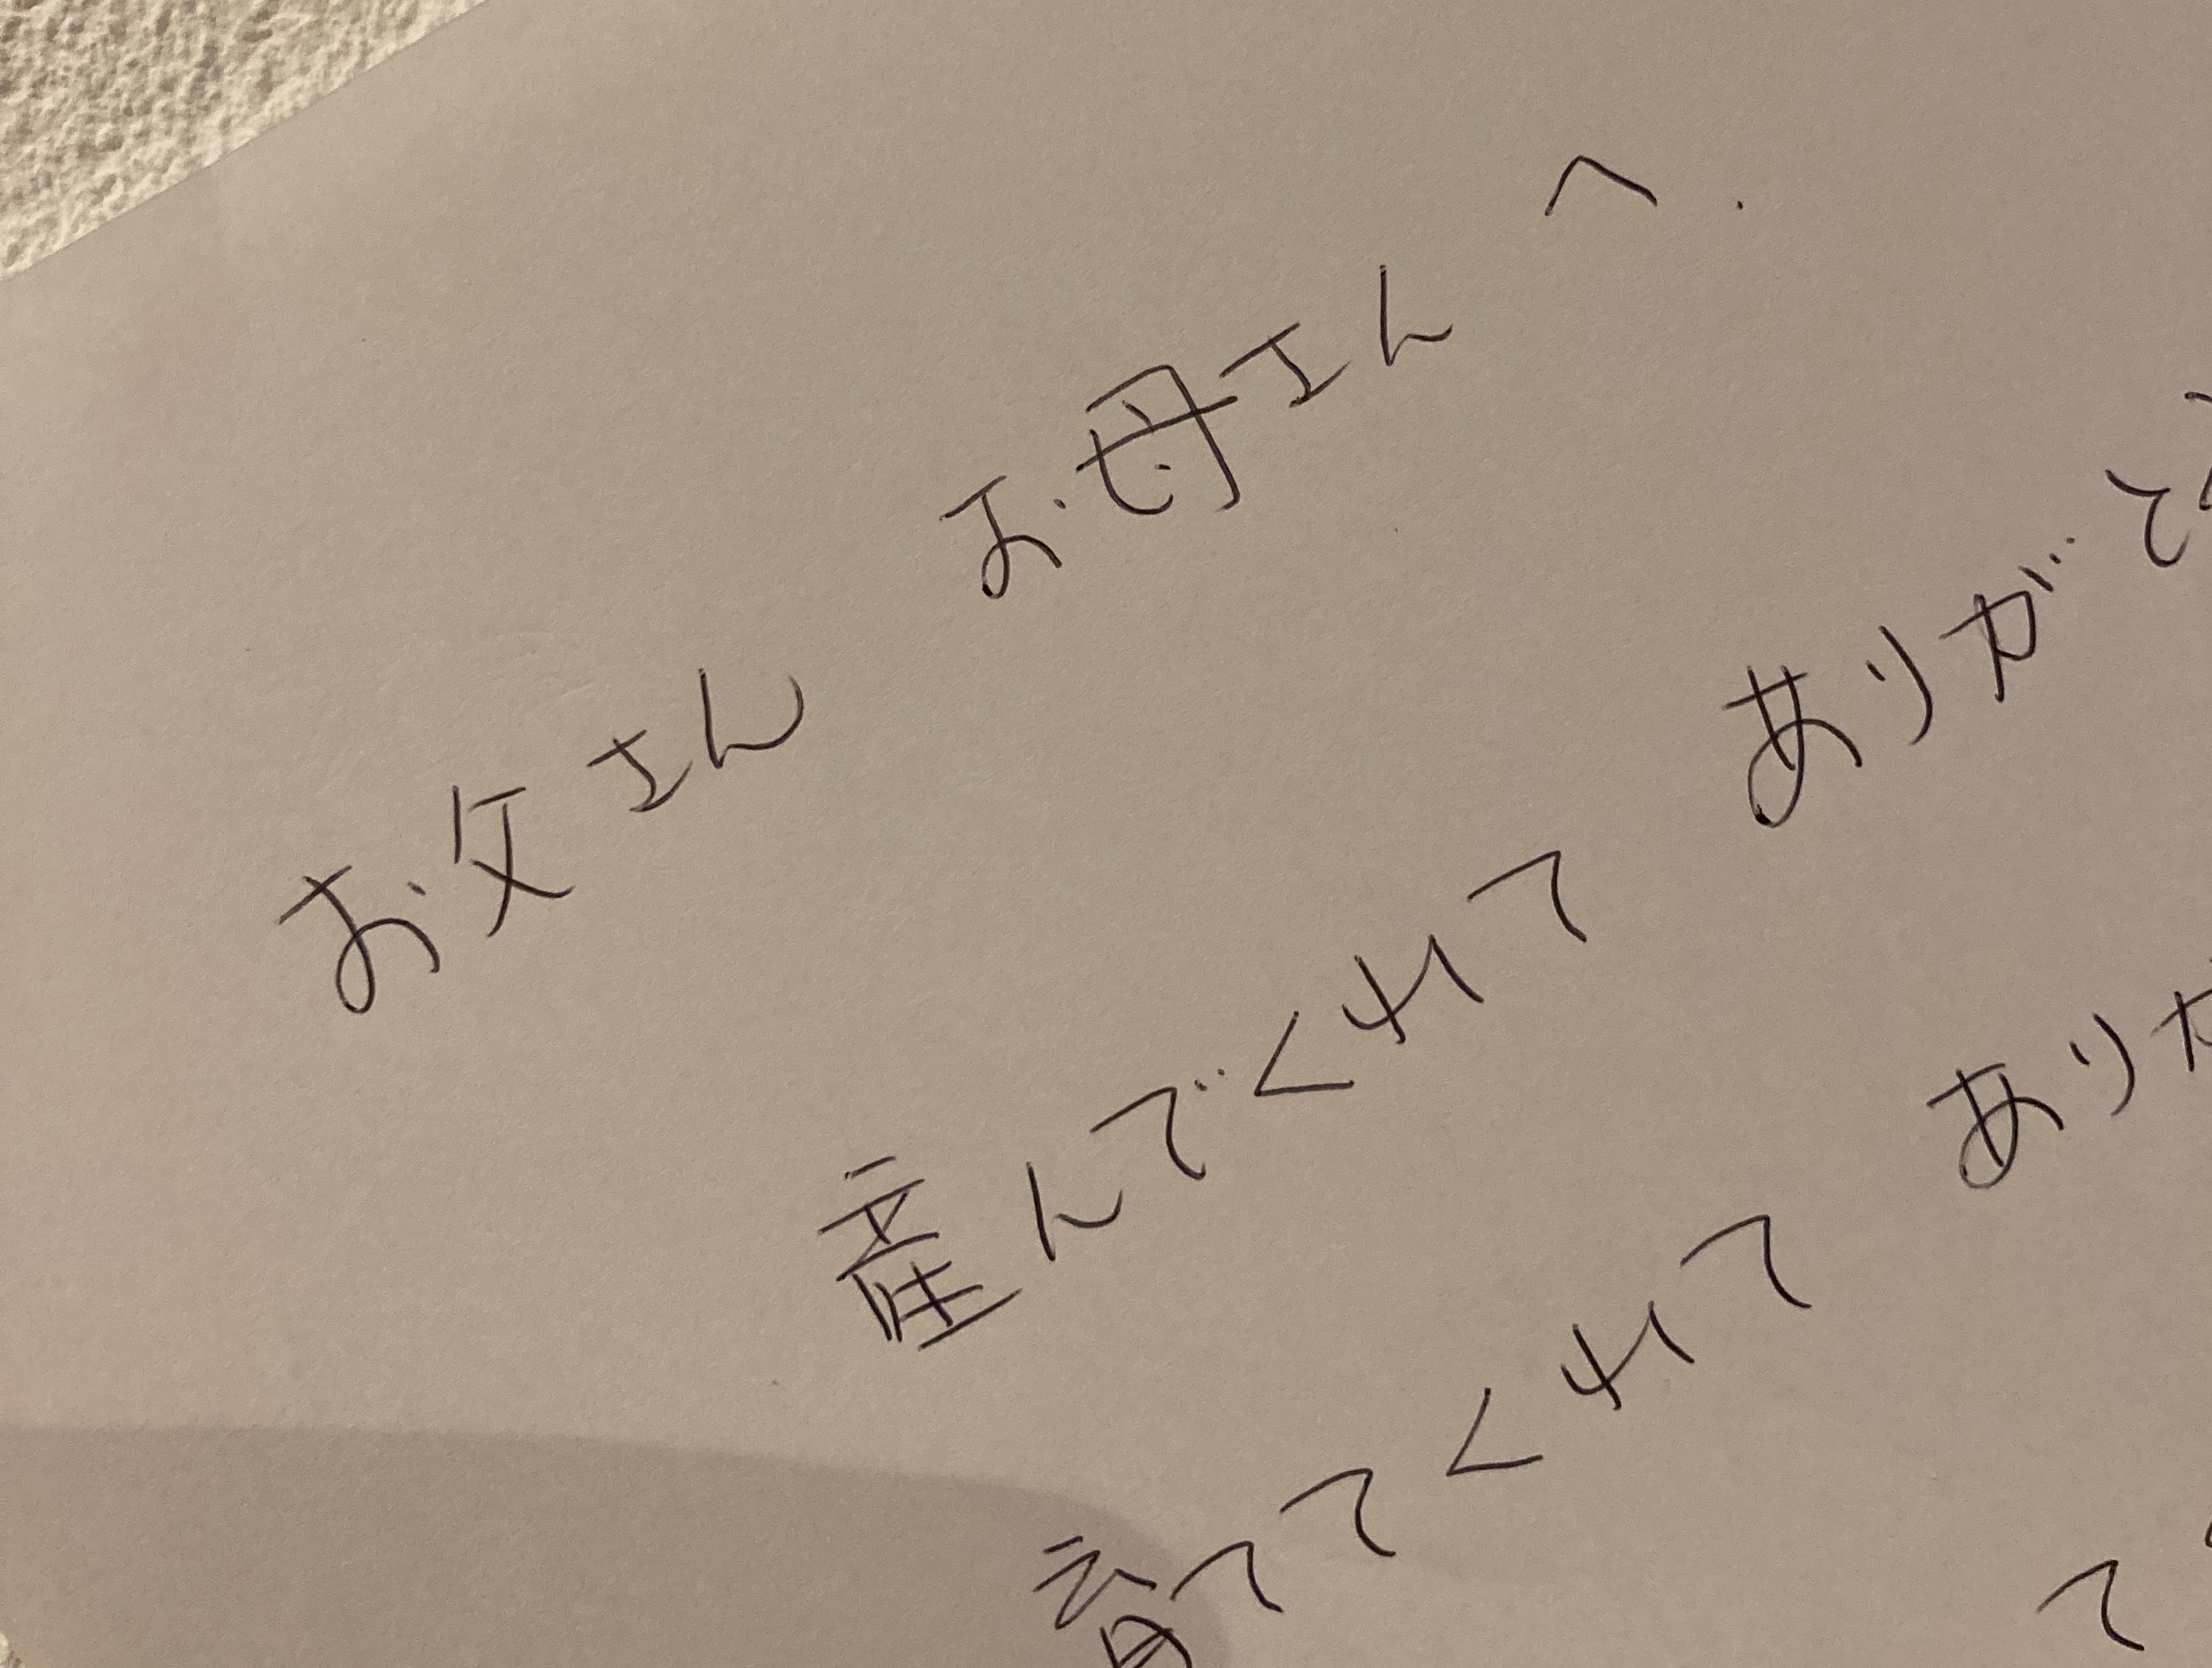 お父さん お母さんへ.
産んでくれて ありがと
育ててくれて あり
て